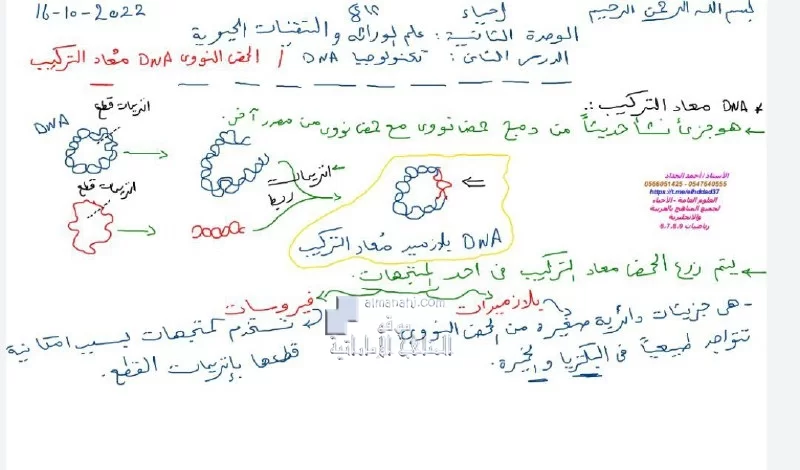 بسم الله الرحمن الرحيم
أحياء
16-10-2022
الوحدة الثانية : علم الوراثة والتقنيات الحيوية
الدرس الثاني : تكنولوجيا DNA / الحمض النووي DNA مُعاد التركيب
* DNA معاد التركيب :.
هو جزئ نشأ حديثاً من دمج حمض نووي مع حمض نووي من مصدر آخر.
DNA
انزيمات قطع
انزيمات قطع
انزيمات ربط
DNA بلازميد مُعاد التركيب
الأستاذ / أحمد الحداد
0566951425 - 0547640555
العلوم العامة - الأحياء
لجميع المناهج بالعربية
والانجليزية
رياضيات 6,7,8,9
يتم زرع الحمض معاد التركيب في احد المتجهات.
بلازميدات
فيروسات
- هي جزيئات دائرية صغيرة من الحمض النووي
تتواجد طبيعياً في البكتريا والخميرة.
تستخدم كمتجهات بسبب امكانية
قطعها بإنزيمات القطع.
almanahj.com
موقع
المناهج الإماراتية